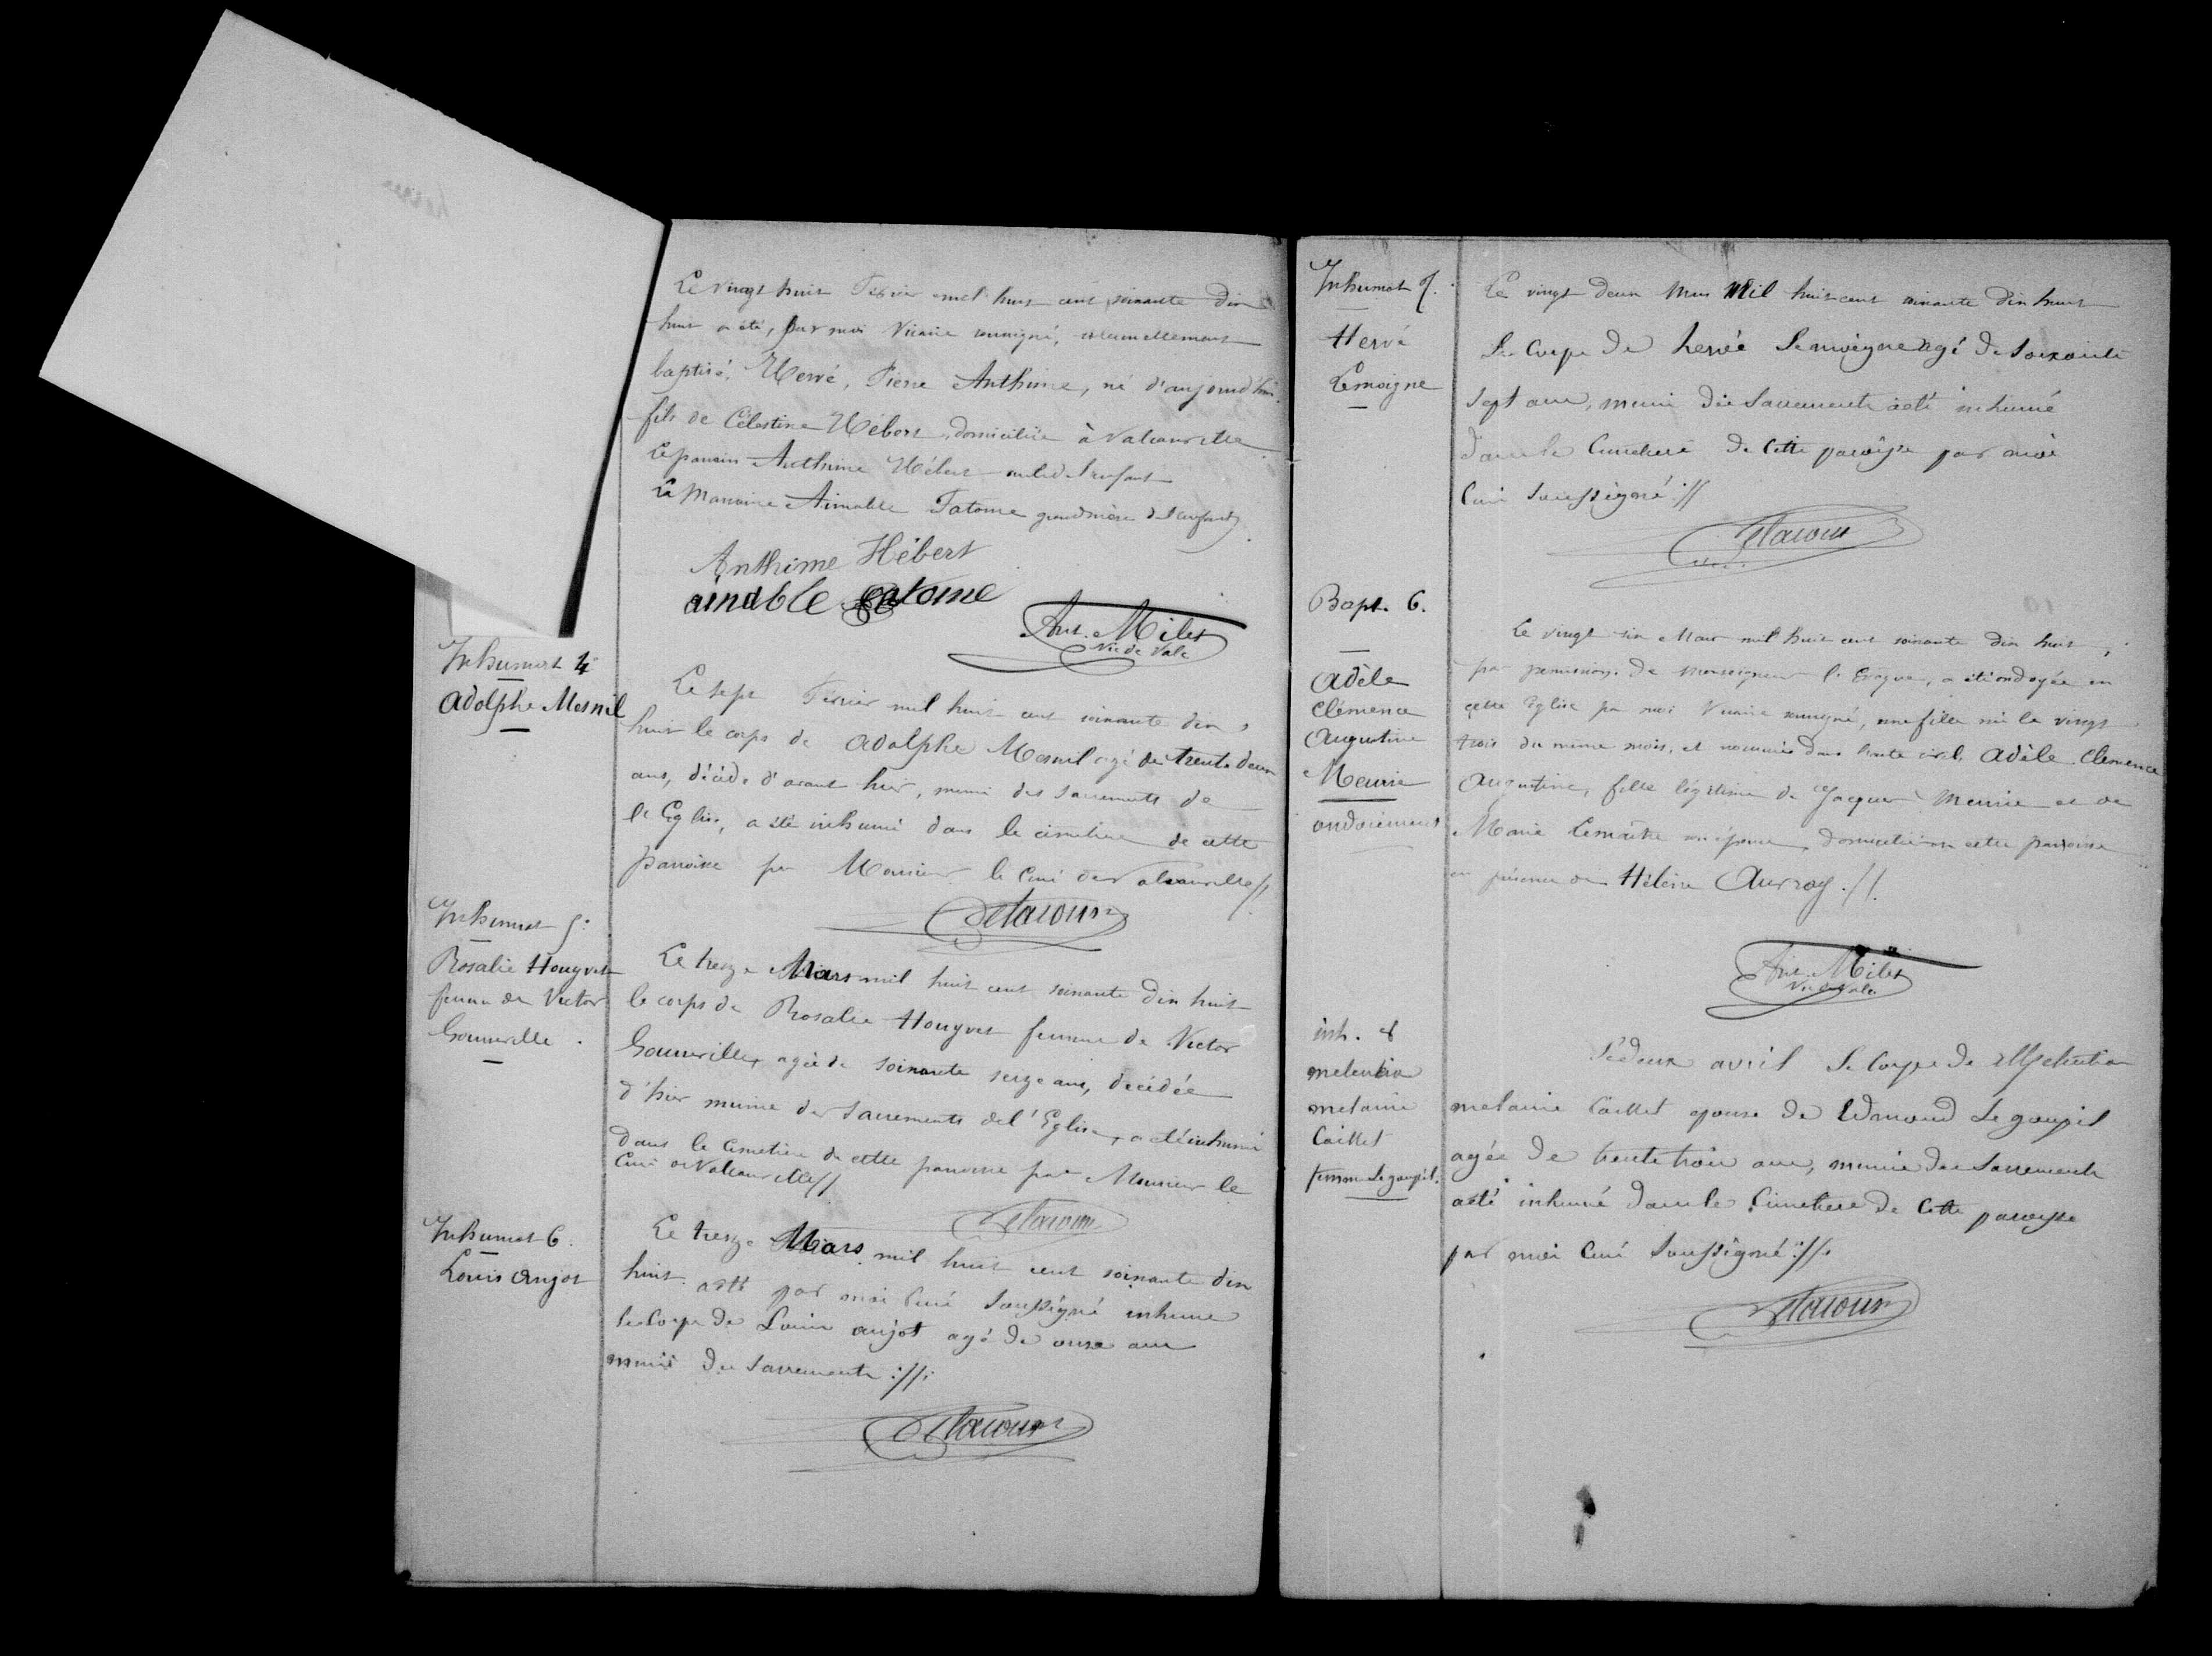 Le vingt huit Février mil huit cent soixante dix
huit a été, par moi Vicaire soussigné, solennellement
baptisé, Hervé, Pierre Anthime, né d'aujourd'hui
fils de Célestine Hébert, domiciliée à Valcanville
Le parrain Anthime Hébert oncle de l'enfant
La Marraine Aimable Tatome grandmère de l'enfant
Anthime Hébert
aimable tatome
Ant. Milet
Vic de Valc
Inhumat 4
Adolphe Mesnil
Le sept Février mil huit cent soixante dix
huit le corps de Adolphe Mesnil agé de trente deux
ans, décédé d'avant hier, muni des sacrements de
l'Eglise, a été inhumé dans le cimetière de cette
paroisse par Monsieur le Curé de Valcanville //.
Delacour
Inhumat 5.
Rosalie Houyvet
femme de Victor
Gouverille.
Le treize Mars mil huit cent soixante dix huit
le corps de Rosalie Houyvet femme de Victor
Gouverille, agée de soixante seize ans, décédée
d'hier munie des Sacrements de l'Eglise, a été inhumé
dans le cimetière de cette paroisse par Monsieur le
Curé de Valcanville //
Delacour
Inhumat 6.
Louis anjot
Le treize Mars mil huit cent soixante dix
huit a été par moi Curé Soussigné inhume
le Corps de Louis anjot agé de onze ans
muni des Sacrements ://:
Delacour
Inhumat 7.
Hervé
Lemoigne
Le vingt deux Mars Mil huit cent soixante dix huit
Le Corps de hervé Lemoigne agé de Soixante
Sept ans, muni des Sacrements a été inhumé
dans le Cimetiere de Cette paroisse par moi
Curé Soussigné ://
Delacour
Bapt. 6.
Adèle
Clémence
Augustine
Meurie
ondoiement
Le vingt six Mars mil huit cent soixante dix huit,
par permission de Monseigneur l'Evêque, a été ondoyée en
cette Eglise par moi Vicaire soussigné, une fille née le vingt
trois du même mois, et nommée dans l'acte civil, Adèle Clemence
Augustine, fille légitime de Jacques Meurie et de
Marie Lemaître son épouse, domiciliés en cette paroisse
en présence de Hélène Auvray. //.
Ant. Milet
Vic de Valc
inh. 8
melentine
melanie
Caillet
femme Legoupil.
Le deux avril Le Corps de Melentine
melanie Caillet epouse de Edmond Legoupil
agée de trente trois ans, munie des Sacrements
a été inhumé dans le Cimetiere de Cette paroisse
par moi Curé Soussigné ://.
Delacour